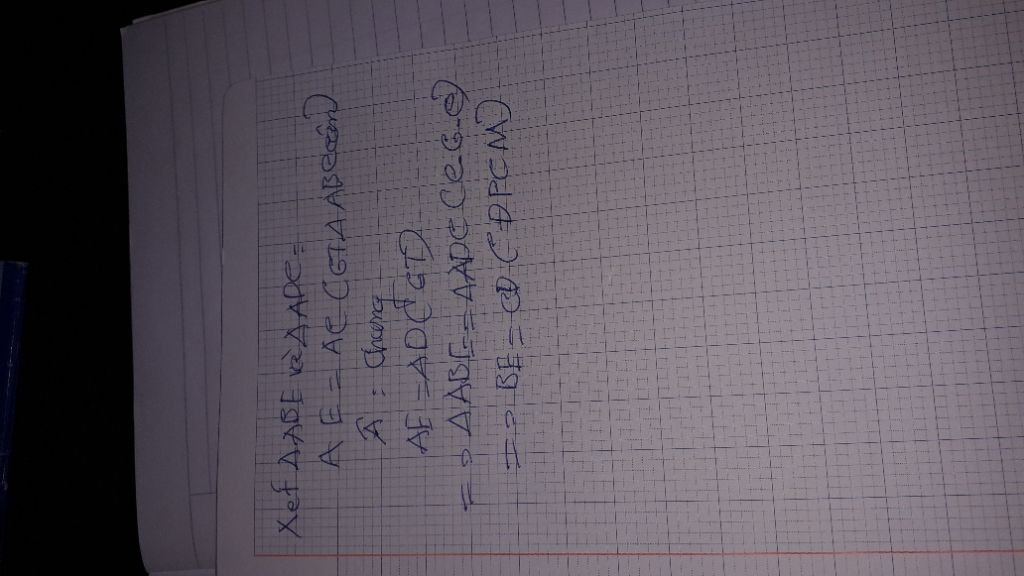 Xét ΔABE và ΔADC =
A E = AC (GT Δ ABC cân)
Â : chung
AE = ADC GT)
=> ΔABE = ΔADC (c.G.c)
=> BE = CD (DPCM)